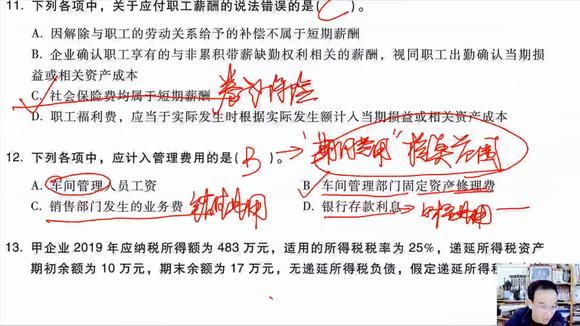 11. 下列各项中，关于应付职工薪酬的说法错误的是( C )。
A. 因解除与职工的劳动关系给予的补偿不属于短期薪酬
B. 企业确认职工享有的与非累积带薪缺勤权利相关的薪酬，视同职工出勤确认当期损
益或相关资产成本
C. 社会保险费均属于短期薪酬
D. 职工福利费，应当于实际发生时根据实际发生额计入当期损益或相关资产成本
12. 下列各项中，应计入管理费用的是( B )。 "期间费用"
A. 车间管理人员工资
B. 车间管理部门固定资产修理费
C. 销售部门发生的业务费 销售费用
D. 银行存款利息
13. 甲企业 2019 年应纳税所得额为 483 万元，适用的所得税税率为 25%，递延所得税资产
期初余额为 10 万元，期末余额为 17 万元，无递延所得税负债，假定递延所得税